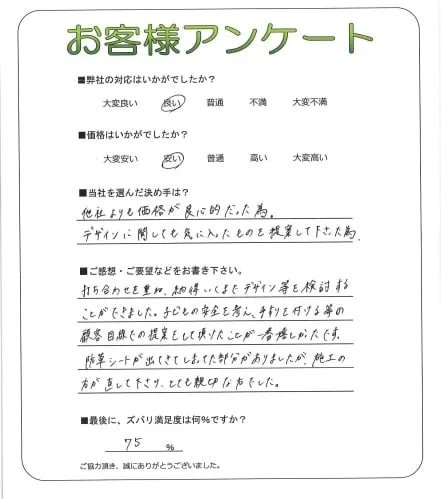 お客様アンケート
■弊社の対応はいかがでしたか？
大変良い 良い 普通 不満 大変不満
■価格はいかがでしたか？
大変安い 安い 普通 高い 大変高い
■当社を選んだ決め手は？
他社よりも価格が良心的だった為。
デザインに関しても気に入ったものを提案して下さった為
■ご感想・ご要望などをお書き下さい。
打ち合わせを重ね、納得いくまでデザイン等を検討する
ことができました。子どもの安全を考え、手すりを付ける等の
顧客目線での提案をして頂けたことが一番嬉しかったです。
防草シートが出てきてしまった部分がありましたが、施工の
方が直して下さり、とても親切な方でした。
■最後に、ズバリ満足度は何％ですか？
75 ％
ご協力頂き、誠にありがとうございました。